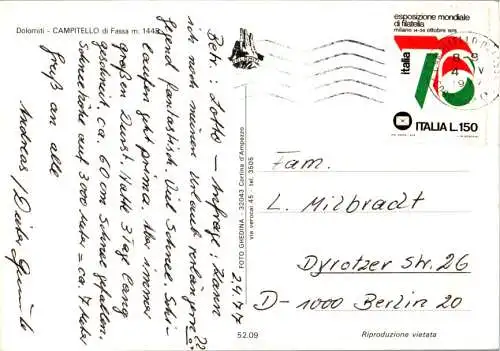 Dolomiti - CAMPITELLO di Fassa m. 1448
2.4.77
Betr: Lotto - Anfrage: Kann
ich noch meinen Urlaub verlängern?
Gegend fantastisch. Viel Schnee. Schi-
laufen geht prima. Aber immer
großen Durst. Hatte 3 Tage lang
geschneit, ca. 60 cm Schnee gefallen.
Schneehöhe auf 3000 Meter = ca. 7 Meter
Gruß an alle
Andreas / Dieter
FOTO GHEDINA - 32043 Cortina d'Ampezzo
via cervoai 45 - tel. 3505
52.09
esposizione mondiale
di filatelia
milano 14-24 ottobre 1976
italia
76
ITALIA L.150
Fam.
L. Milbradt
Dyrotzer Str. 26
D-1000 Berlin 20
Riproduzione vietata